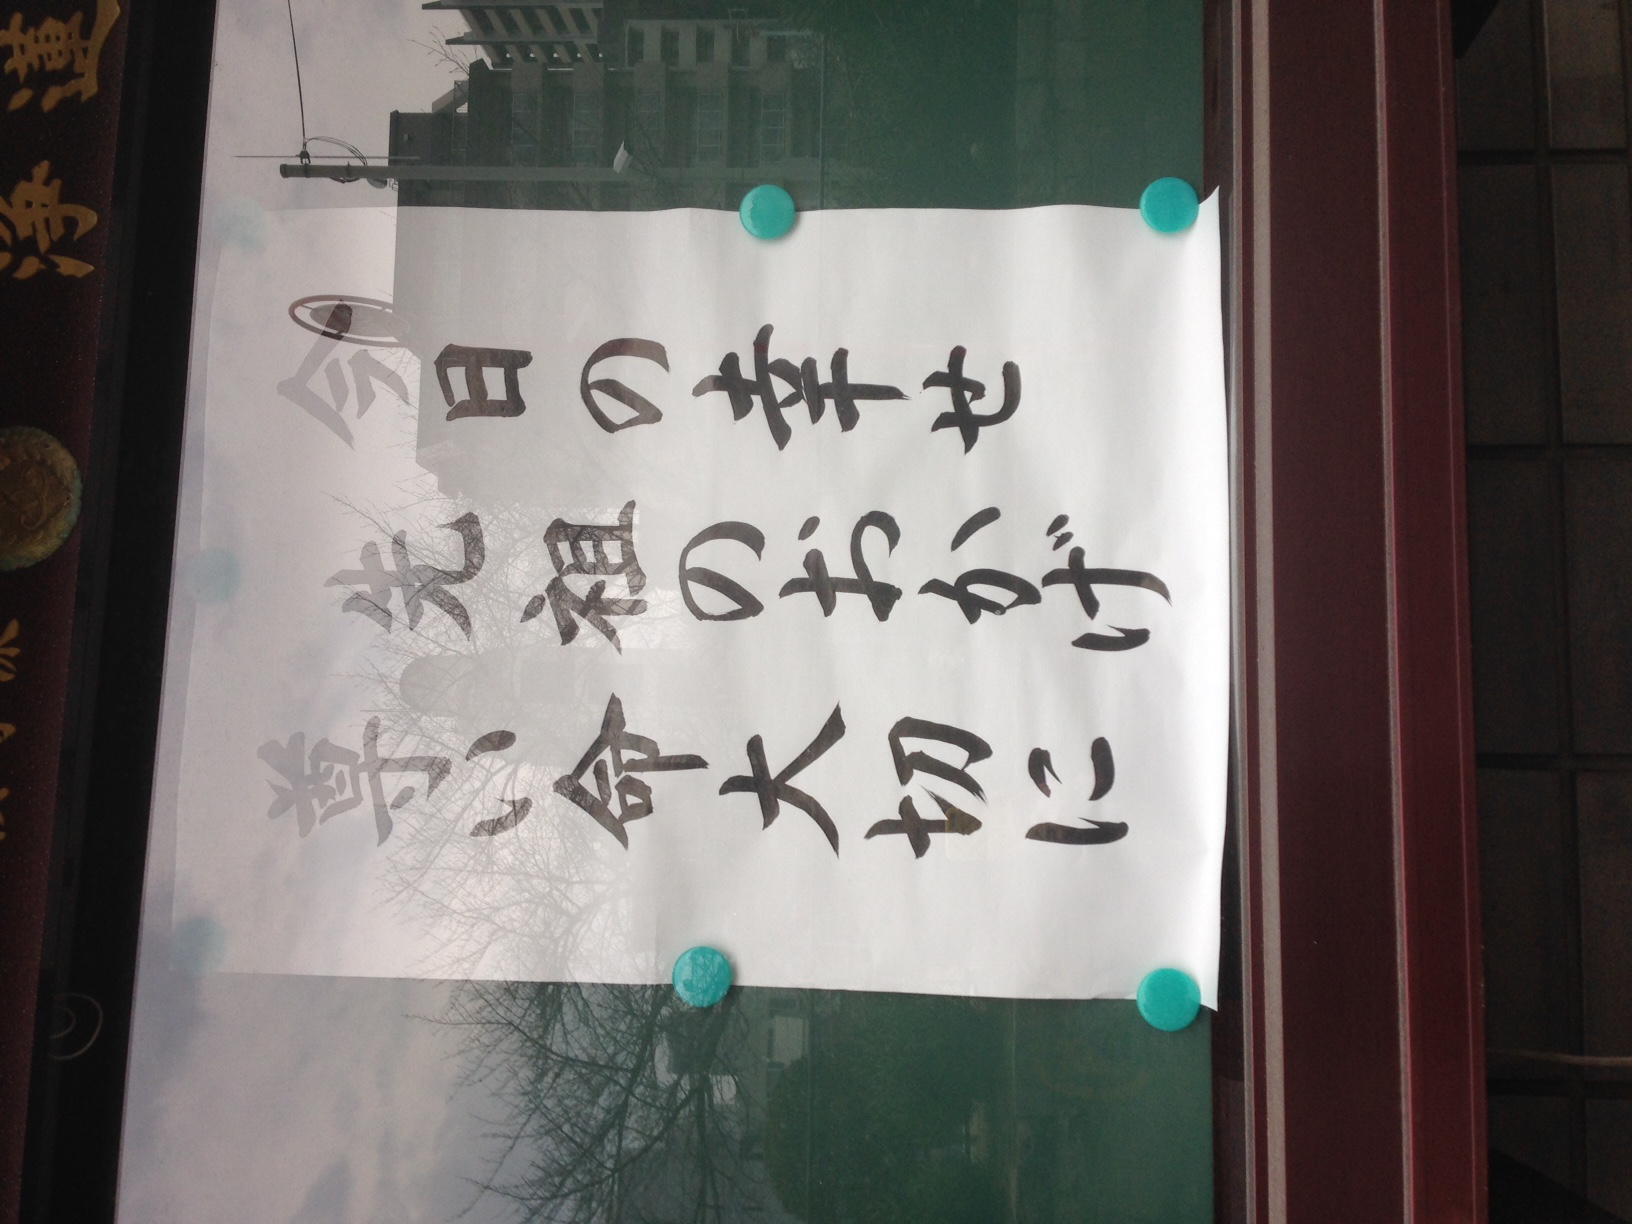 今日の幸せ
先祖のおかげ
尊い命大切に